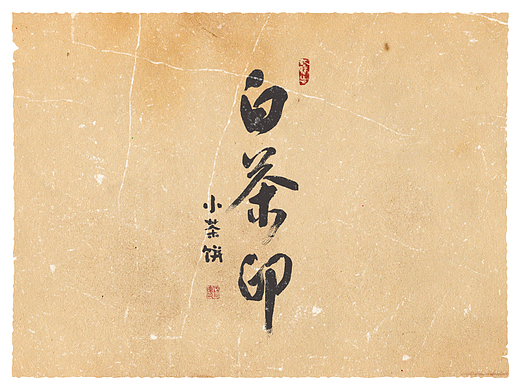 白茶印
小茶饼